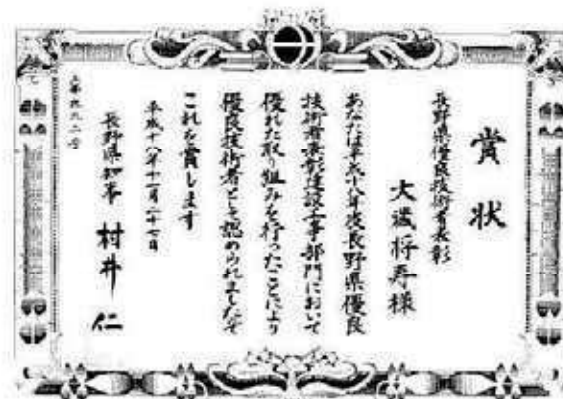 賞状
長野県優良技術者表彰
大磯将寿様
あなたは平成十八年度長野県優良
技術者表彰建設工事部門において
優れた取り組みを行ったことにより
優良技術者として認められましたので
これを賞します
平成十八年十一月二十七日
長野県知事 村井 仁